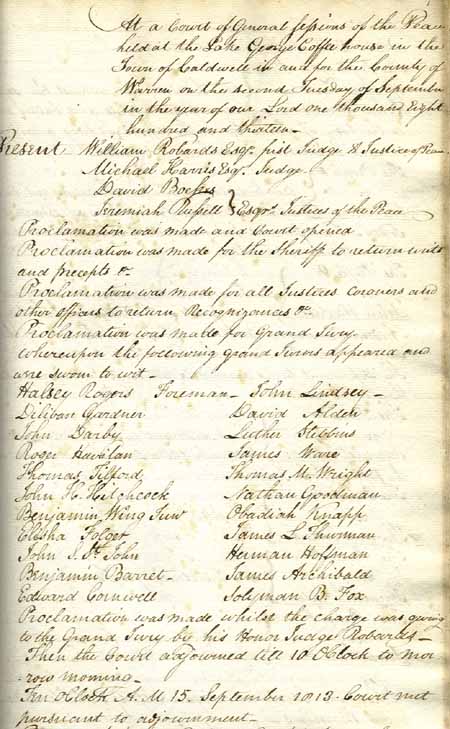 At a Court of General sessions of the Peace
held at the Lake George Coffe house in the
Town of Caldwell in and for the County of
Warren on the second Tuesday of September
in the year of our Lord one thousand Eight
hundred and thirteen
Present William Robards Esqr. first Judge & Justice of Peace
Michael Harris Esqr. Judge
David Bockes
Jeremiah Russell } Esqrs. Justices of the Peace
Proclamation was made and Court opened
Proclamation was made for the Sheriff to return writs
and precepts &c.
Proclamation was made for all Justices Coroners and
other officers to return Recognizances &c.
Proclamation was made for Grand Jury
whereupon the following grand Jurors appeared and
were sworn to wit
Halsey Rogers Foreman - John Lindsey
Gardner David Alden
John Darby Luther Stebbins
Roger Havilan James Ware
Thomas Tilford Thomas M. Wright
John H. Hitchcock Nathan Goodman
Benjamin Wing Junr Obadiah Knapp
Elisha Folger James L. Thurman
John S. St. John Herman Hoffman
Benjamin Barret James Archibald
Edward Cornwell Solyman B. Fox
Proclamation was made whilst the charge was giving
to the Grand Jury by his Honor Judge Robards
Then the Court adjourned till 10 OClock to mor
row morning
Ten OClock A.M 15. September 1813. Court met
pursuant to adjournment